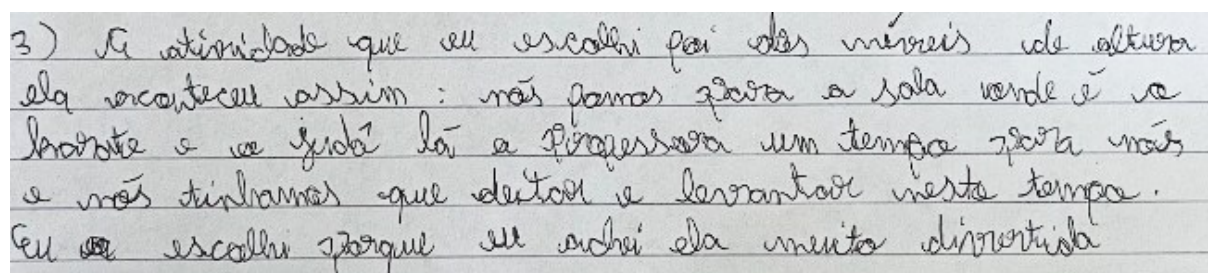 3) A atividade que eu escolhi foi dos níveis de altura
ela aconteceu assim: nós fomos para a sala onde é o
karate e o judô lá a Professora um tempo para nós
e nós tinhamos que deitar e levantar neste tempo.
Eu escolhi porque eu achei ela muito divirtida